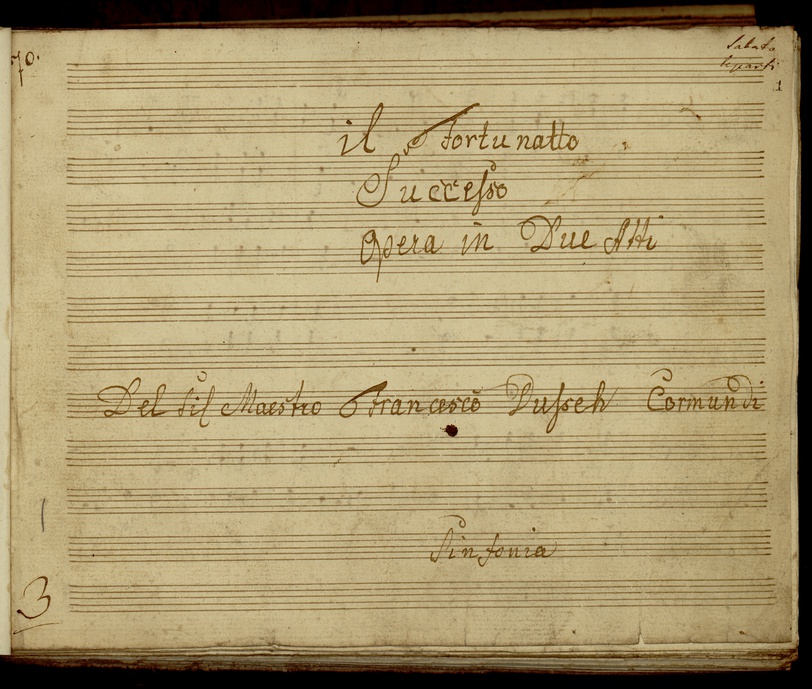 70.
Sabato
1
il Fortunatto
Successo
Opera in Due Atti
Del Sig Maestro Francesco Dusseh Cormundi
Sinfonia
3